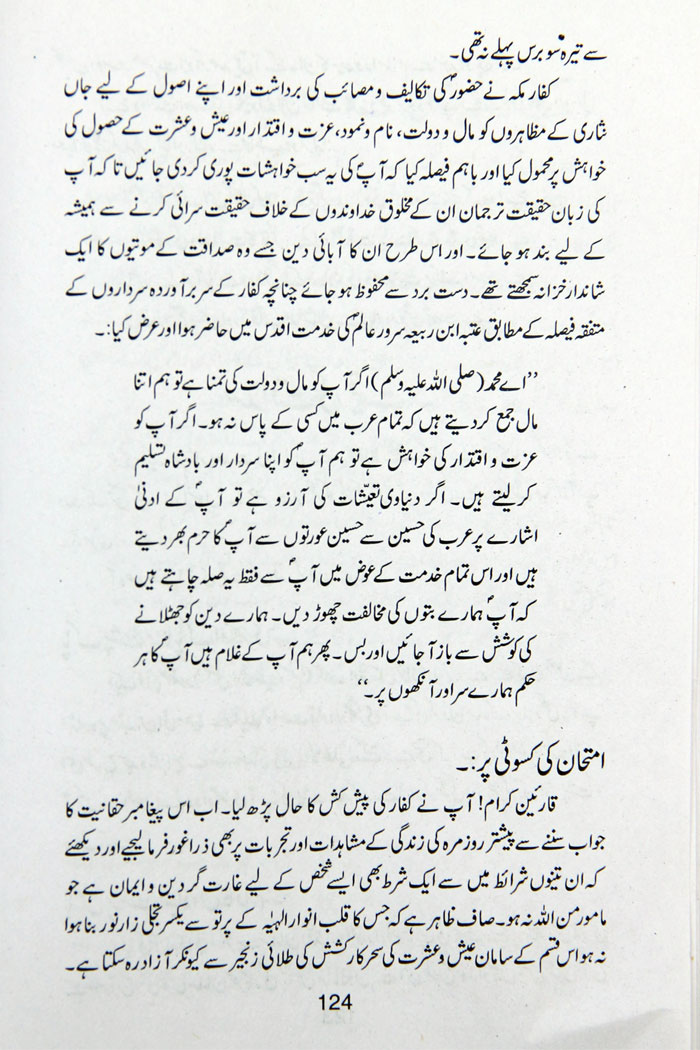 سے تیرہ سو برس پہلے نہ تھی۔
کفار مکہ نے حضورؐ کی تکالیف و مصائب کی برداشت اور اپنے اصول کے لیے جاں
نثاری کے مظاہروں کو مال و دولت، نام و نمود، عزت و اقتدار اور عیش و عشرت کے حصول کی
خواہش پر محمول کیا اور باہم فیصلہ کیا کہ آپؐ کی یہ سب خواہشات پوری کر دی جائیں تا کہ آپ
کی زبان حقیقت ترجمان ان کے مخلوق خداوندوں کے خلاف حقیقت سرائی کرنے سے ہمیشہ
کے لیے بند ہو جائے۔ اور اس طرح ان کا آبائی دین جسے وہ صداقت کے موتیوں کا ایک
شاندار خزانہ سمجھتے تھے۔ دست برد سے محفوظ ہو جائے چنانچہ کفار کے سربرآوردہ سرداروں کے
متفقہ فیصلہ کے مطابق عتبہ ابن ربیعہ سرور عالمؐ کی خدمت اقدس میں حاضر ہوا اور عرض کیا:۔
’’اے محمد (صلی اللہ علیہ وسلم) اگر آپ کو مال و دولت کی تمنا ہے تو ہم اتنا
مال جمع کر دیتے ہیں کہ تمام عرب میں کسی کے پاس نہ ہو۔ اگر آپ کو
عزت و اقتدار کی خواہش ہے تو ہم آپؐ کو اپنا سردار اور بادشاہ تسلیم
کر لیتے ہیں۔ اگر دنیاوی تعیّشات کی آرزو ہے تو آپؐ کے ادنیٰ
اشارے پر عرب کی حسین سے حسین عورتوں سے آپؐ کا حرم بھر دیتے
ہیں اور اس تمام خدمت کے عوض میں آپؐ سے فقط یہ صلہ چاہتے ہیں
کہ آپؐ ہمارے بتوں کی مخالفت چھوڑ دیں۔ ہمارے دین کو جھٹلانے
کی کوشش سے باز آ جائیں اور بس۔ پھر ہم آپ کے غلام ہیں آپؐ کا ہر
حکم ہمارے سر اور آنکھوں پر۔‘‘
امتحان کی کسوٹی پر:۔
قارئین کرام! آپ نے کفار کی پیش کش کا حال پڑھ لیا۔ اب اس پیغامبر حقانیت کا
جواب سننے سے پیشتر روزمرہ کی زندگی کے مشاہدات اور تجربات پر بھی ذرا غور فرما لیجیے اور دیکھئے
کہ ان تینوں شرائط میں سے ایک شرط بھی ایسے شخص کے لیے غارت گر دین و ایمان ہے جو
مامور من اللہ نہ ہو۔ صاف ظاہر ہے کہ جس کا قلب انوار الہٰیہ کے پرتو سے یکسر تجلی زار نور بنا ہوا
نہ ہو اس قسم کے سامان عیش و عشرت کی سحر کار کشش کی طلائی زنجیر سے کیونکر آزاد رہ سکتا ہے۔
124